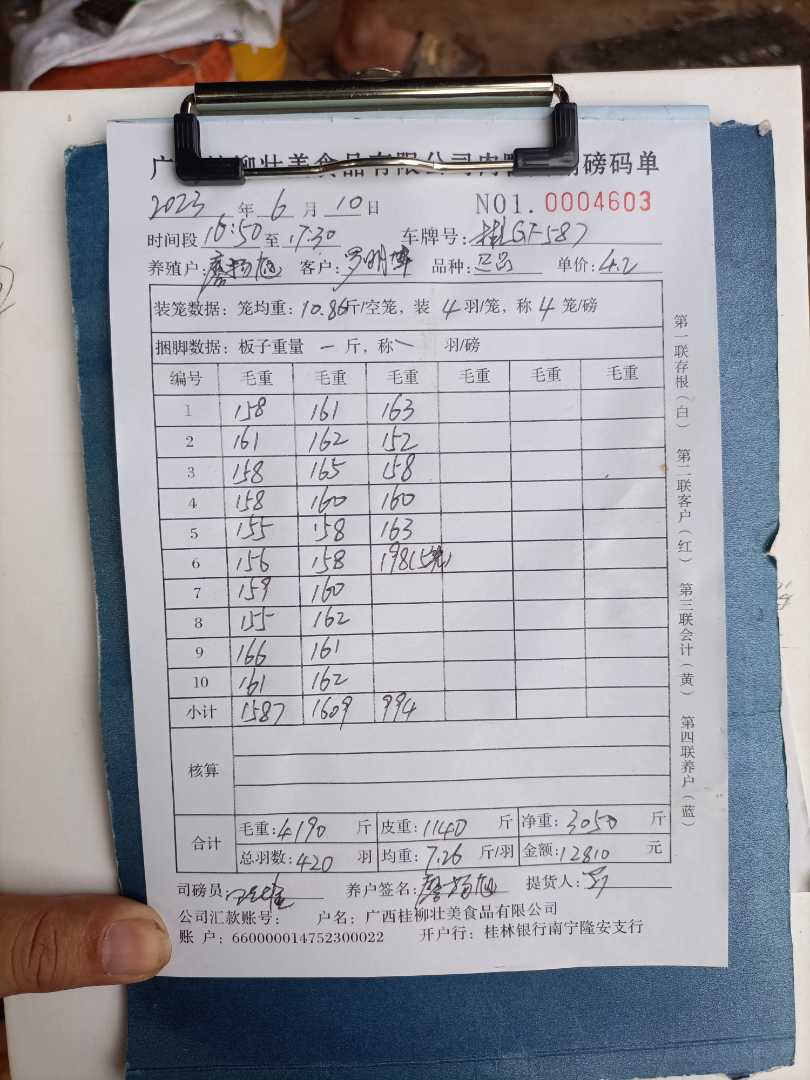 广 柳壮美食品有限公司肉 磅码单
2023年6月10日 NO1.0004603
时间段16:50至17:30 车牌号:桂LGF587
养殖户: 客户:罗明 品种: 单价:4.2
装笼数据:笼均重:10.86斤/空笼,装4羽/笼,称4笼/磅
捆脚数据:板子重量一斤,称一羽/磅
编号 毛重 毛重 毛重 毛重 毛重 毛重
1 158 161 163
2 161 162 152
3 158 165 158
4 158 160 160
5 155 158 163
6 156 158 198(5笼)
7 159 160
8 155 162
9 166 161
10 161 162
小计 1587 1609 994
核算
合计 毛重:4190斤 皮重:1140斤 净重:3050斤
总羽数:420羽 均重:7.26斤/羽 金额:12810元
司磅员: 养户签名: 提货人:罗
公司汇款账号: 户名:广西桂柳壮美食品有限公司
账户:660000014752300022 开户行:桂林银行南宁隆安支行
第一联存根(白) 第二联客户(红) 第三联会计(黄) 第四联养户(蓝)